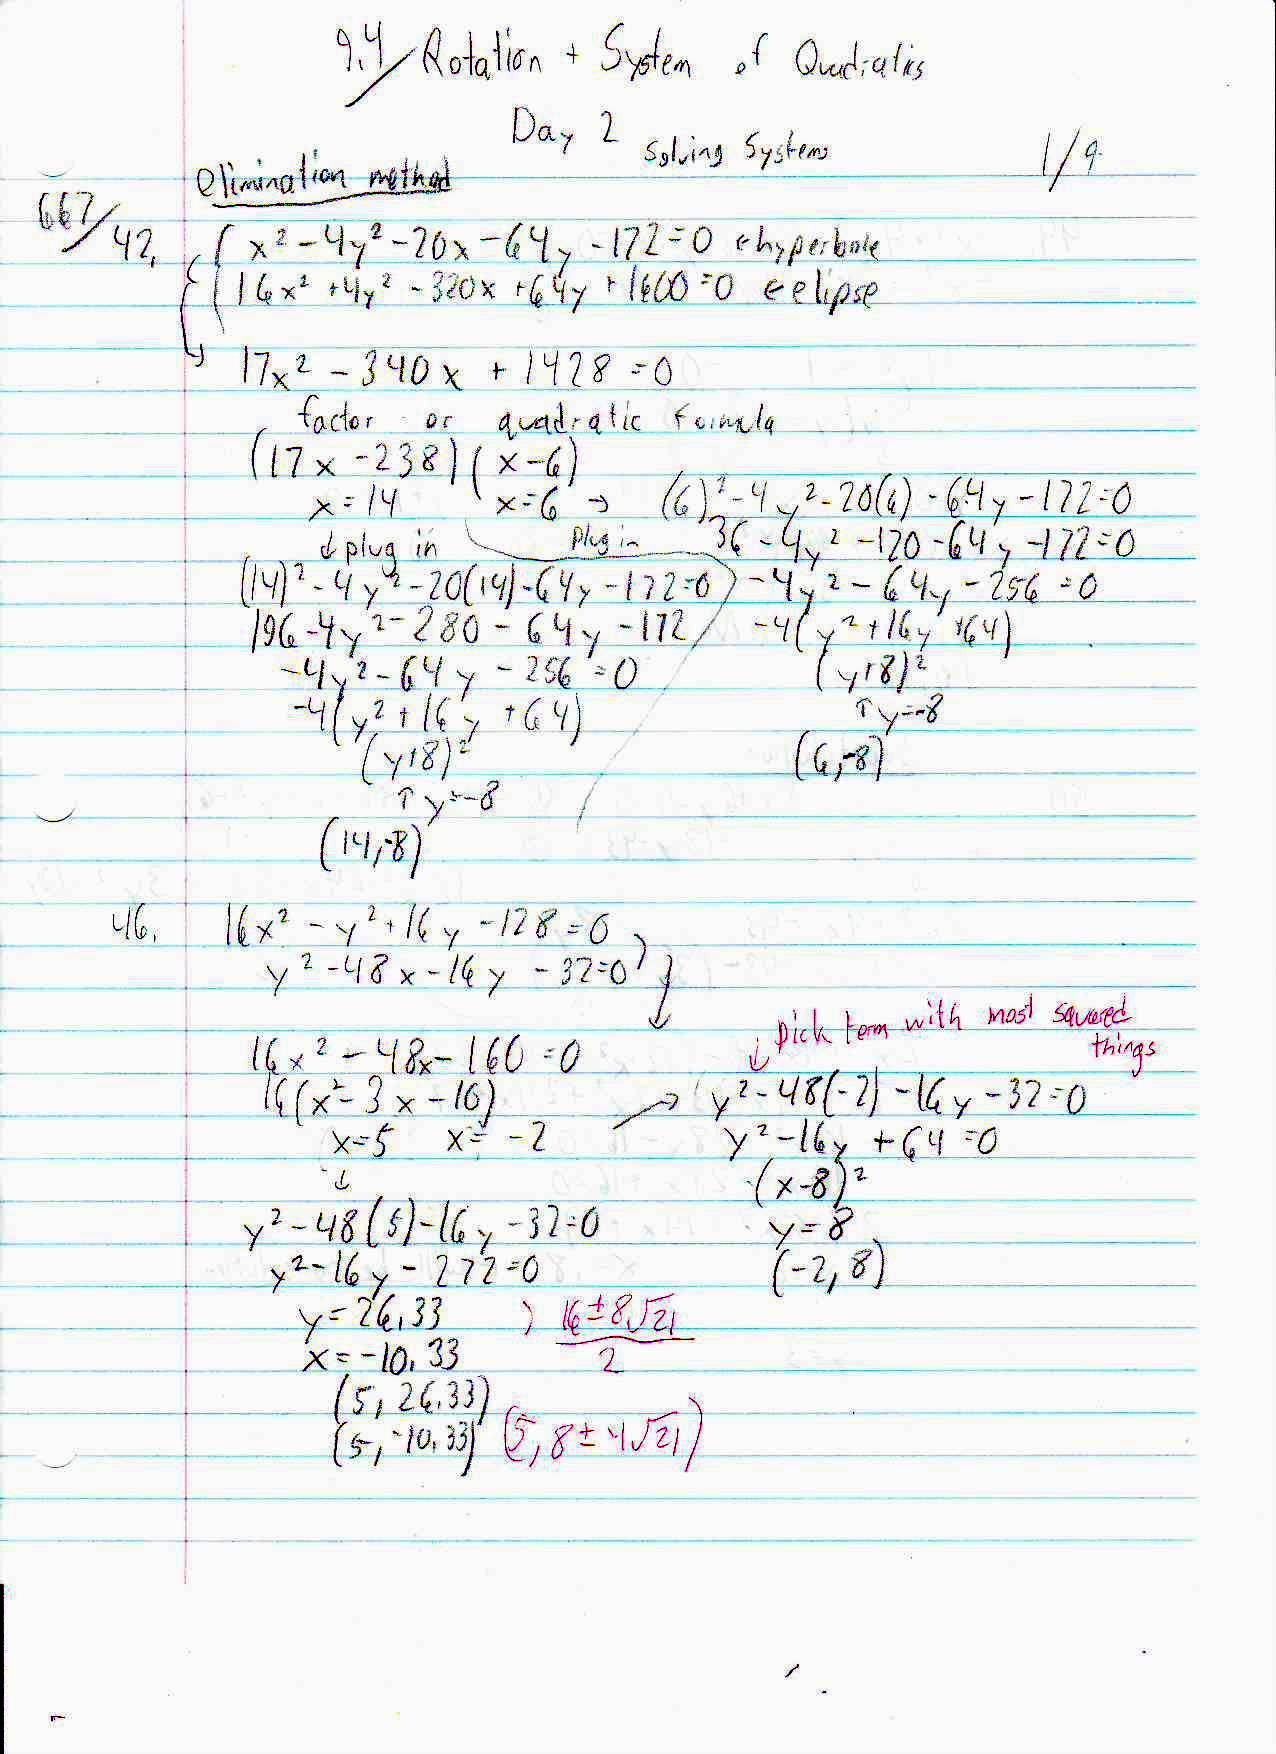 9.4/ Rotation + System of Quadratics
Day 2 Solving Systems 1/9
elimination method
667/42. x² - 4y² - 20x - 64y - 172 = 0 ← hyperbole
16x² + 4y² - 320x + 64y + 1600 = 0 ← elipse
17x² - 340x + 1428 = 0
factor or quadratic formula
(17x - 238)(x - 6)
x = 14 x = 6 → (6)² - 4y² - 20(6) - 64y - 172 = 0
↓ plug in plug in 36 - 4y² - 120 - 64y - 172 = 0
(14)² - 4y² - 20(14) - 64y - 172 = 0 -4y² - 64y - 256 = 0
196 - 4y² - 280 - 64y - 172 -4(y² + 16y + 64)
-4y² - 64y - 256 = 0 (y+8)²
-4(y² + 16y + 64) ↑ y = -8
(y+8)² (6, -8)
↑ y = -8
(14, -8)
46. 16x² - y² + 16y - 128 = 0
y² - 48x - 16y - 32 = 0
pick term with most squared things
16x² - 48x - 160 = 0
16(x² - 3x - 10) → y² - 48(-2) - 16y - 32 = 0
x = 5 x = -2 y² - 16y + 64 = 0
↓ (x-8)²
y² - 48(5) - 16y - 32 = 0 y = 8
y² - 16y - 272 = 0 (-2, 8)
y = 26.33 ) 16 ± 8√21 / 2
x = -10.33
(5, 26.33)
(5, -10.33) (5, 8 ± 4√21)